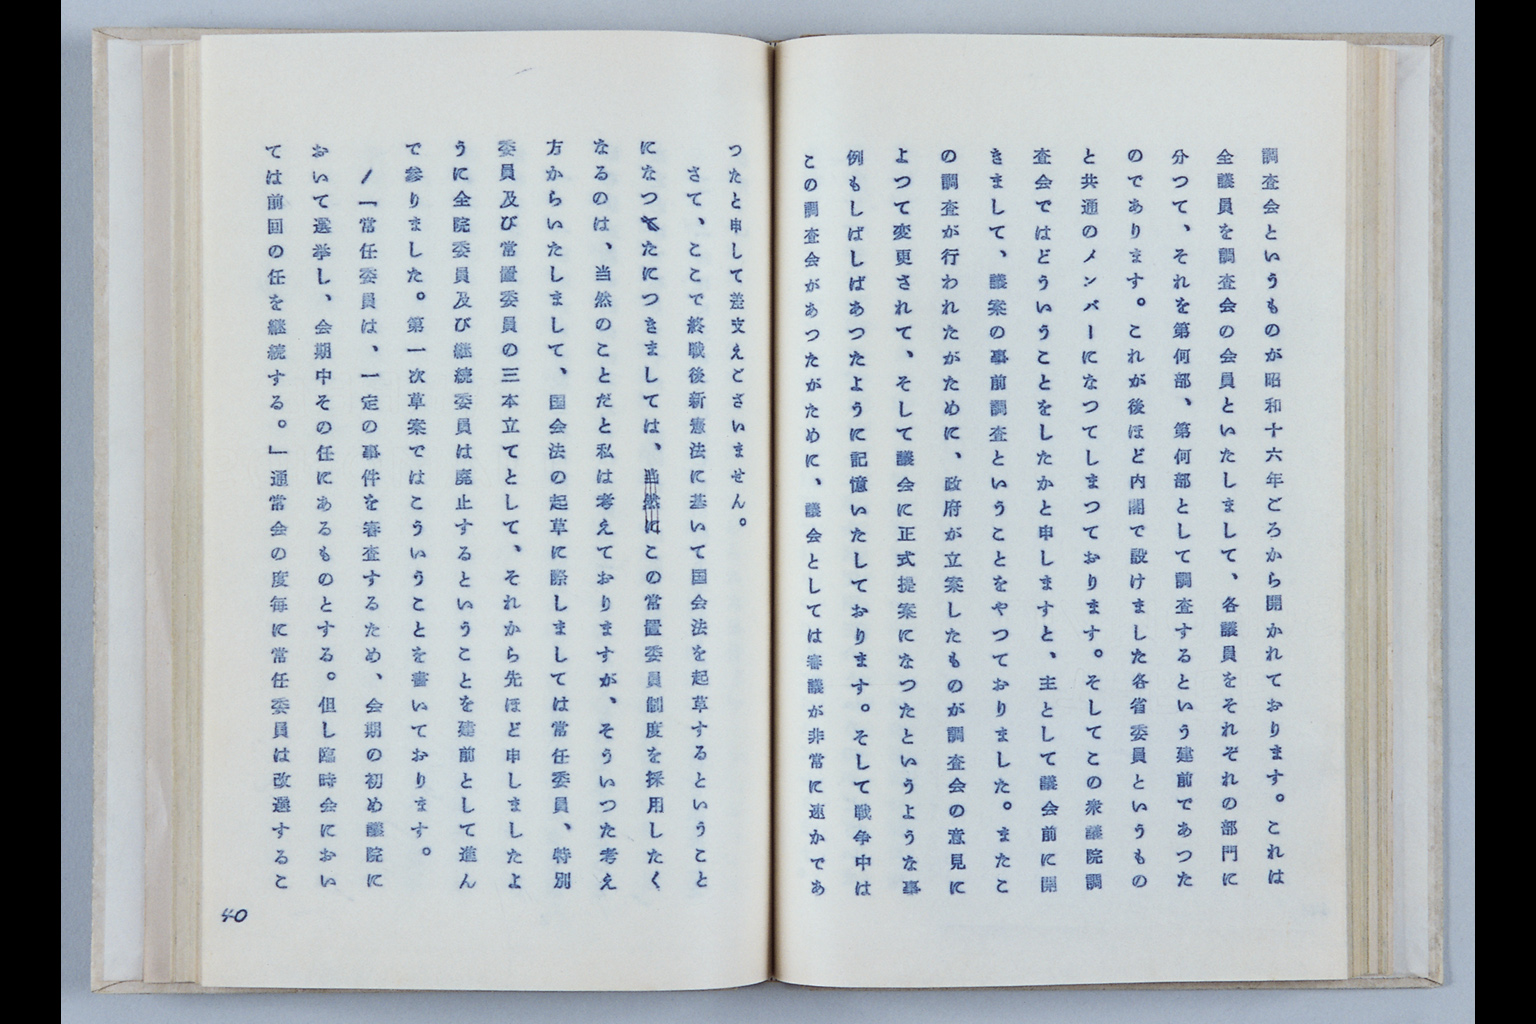 調査会というものが昭和十六年ごろから開かれております。これは
全議員を調査会の会員といたしまして、各議員をそれぞれの部門に
分つて、それを第何部、第何部として調査するという建前であつた
のであります。これが後ほど内閣で設けました各省委員というもの
と共通のメンバーになつてしまつております。そしてこの衆議院調
査会ではどういうことをしたかと申しますと、主として議会前に開
きまして、議案の事前調査ということをやつておりました。またこ
の調査が行われたがために、政府が立案したものが調査会の意見に
よつて変更されて、そして議会に正式提案になつたというような事
例もしばしばあつたように記憶いたしております。そして戦争中は
この調査会があつたがために、議会としては審議が非常に速かであ
つたと申して差支えございません。
さて、ここで終戦後新憲法に基いて国会法を起草するということ
になつたにつきましては、当然にこの常置委員制度を採用したく
なるのは、当然のことだと私は考えておりますが、そういつた考え
方からいたしまして、国会法の起草に際しましては常任委員、特別
委員及び常置委員の三本立てとして、それから先ほど申しましたよ
うに全院委員及び継続委員は廃止するということを建前として進ん
で参りました。第一次草案ではこういうことを書いております。
「常任委員は、一定の事件を審査するため、会期の初め議院に
おいて選挙し、会期中その任にあるものとする。但し臨時会におい
ては前回の任を継続する。」通常会の度毎に常任委員は改選するこ
40